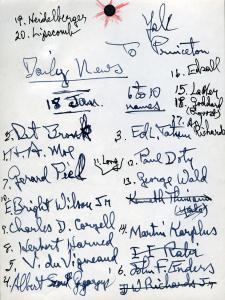 19. Heidelberger
20. Lipscomb
Yale
To Princeton
Daily News
18 Jan.
6 to 10
names
16. Edsall
15. Lastley
18. Goddard
2. Det Bronk
3. Ed L. Tatum
H. A. Moe
11. Long
12. Paul Doty
7. Gerard Piel
13. George Wald
10. E. Bright Wilson Jr
9. Charles D. Coryell
14. Martin Karplus
8. Herbert Harned
5. V. du Vigneaud
6. John F. Enders
4. Albert Szent Gyorgyi